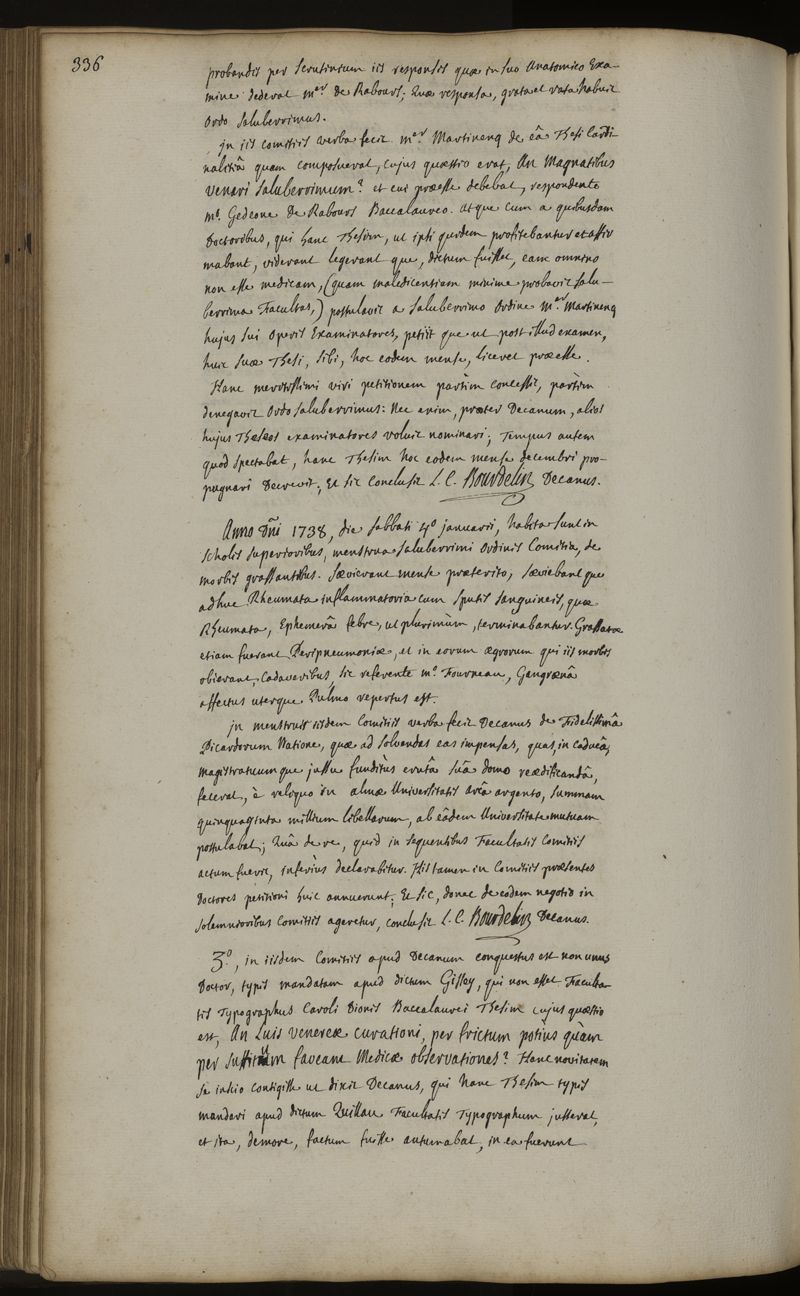 336
probandis per scrutinium iis responsis quæ in suo Anatomico Exa-
mine dederat m.er De Rabours; Quæ responsa, grata et rata habuit
Ordo saluberrimus.
jn iis comitiis verba fecit m.er Martinenq de eâ Thesi Cardi-
nalitiâ quam composuerat, cujus quæstio erat, An Magnatibus
venari saluberrimum? et cui præesse debebat, respondente
m.o Gedeone De Rabours Baccalaureo. atque cum a quibusdam
Doctoribus, qui hanc Thesim, ut ipsi quidem profitebantur et affir
mabant, viderant legerant que, dictum fuisset, eam omnino
non esse medicam, (quam maledicentiam minime probavit salu-
berrima Facultas,) postulavit a saluberrimo ordine m.er Martinenq
hujus sui operis Examinatores, petiit que ut post illud examen,
huic suæ Thesi, sibi, hoc eodem mense, liceret præesse.
Hanc meritissimi viri petitionem partim concessit, partim
denegavit Ordo saluberrimus: Nec enim, præter Decanum, alios
hujus Theseos examinatores voluit nominari; Tempus autem
quod spectabat, hanc Thesim hoc eodem mense decembri pro-
pugnari Decrevit; Et sic Conclusit L. C. Bourdelin Decanus.
Anno Dñi 1738, die sabbati 4.o januarii, habita sunt in
scholis superioribus, menstrua saluberrimi Ordinis Comitia, de
morbis grassantibus. Sævierant mense præterito, sæviebant que
adhuc Rheumata inflammatoria cum sputis sanguineis, quæ
Rheumata, Ephemerâ febre, ut plurimùm, terminabantur. Grassatæ
etiam fuerant Peripneumoniæ, et in eorum ægrorum qui iis morbis
obierant, Cadaveribus, sic referente m.o Fourneau, Gangrænâ
affectus uterque Pulmo repertus est.
jn menstruis iisdem Comitiis verba fecit Decanus de Fidelissimâ
Picardorum Natione, quæ ad solvendas eas impensas, quas, in caducâ,
magistratuum que jussu funditus erutâ suâ domo reædificandâ,
fecerat, è reliquo in almæ Universitatis arcâ argento, summam
quinquaginta millium libellarum, ab eâdem Universitate mutuam
postulabat; Quâ de re, quid in sequentibus Facultatis Comitiis
actum fuerit, inferiùs declarabitur. His tamen in Comitiis præsentes
Doctores petitioni huic annuerunt; Et sic, donec de eodem negotio in
solemnioribus Comitiis ageretur, conclusit L. C. Bourdelin Decanus.
3.o, in iisdem Comitiis apud Decanum conquestus est non unus
Doctor, typis mandatam apud dictum Gissey, qui non esset Faculta-
tis Typographus Caroli Dionis Baccalaurei Thesim cujus quæstio
est, An Luis venereæ curationi, per frictum potius quàm
per suffitum faveant Medicæ observationes? Hanc novitatem
se inscio contigisse ut dixit Decanus, qui hanc Thesim typis
mandari apud dictum Quillau Facultatis Typographum jusserat,
et ita, de more, factum fuisse autumabat, in ea fuerunt